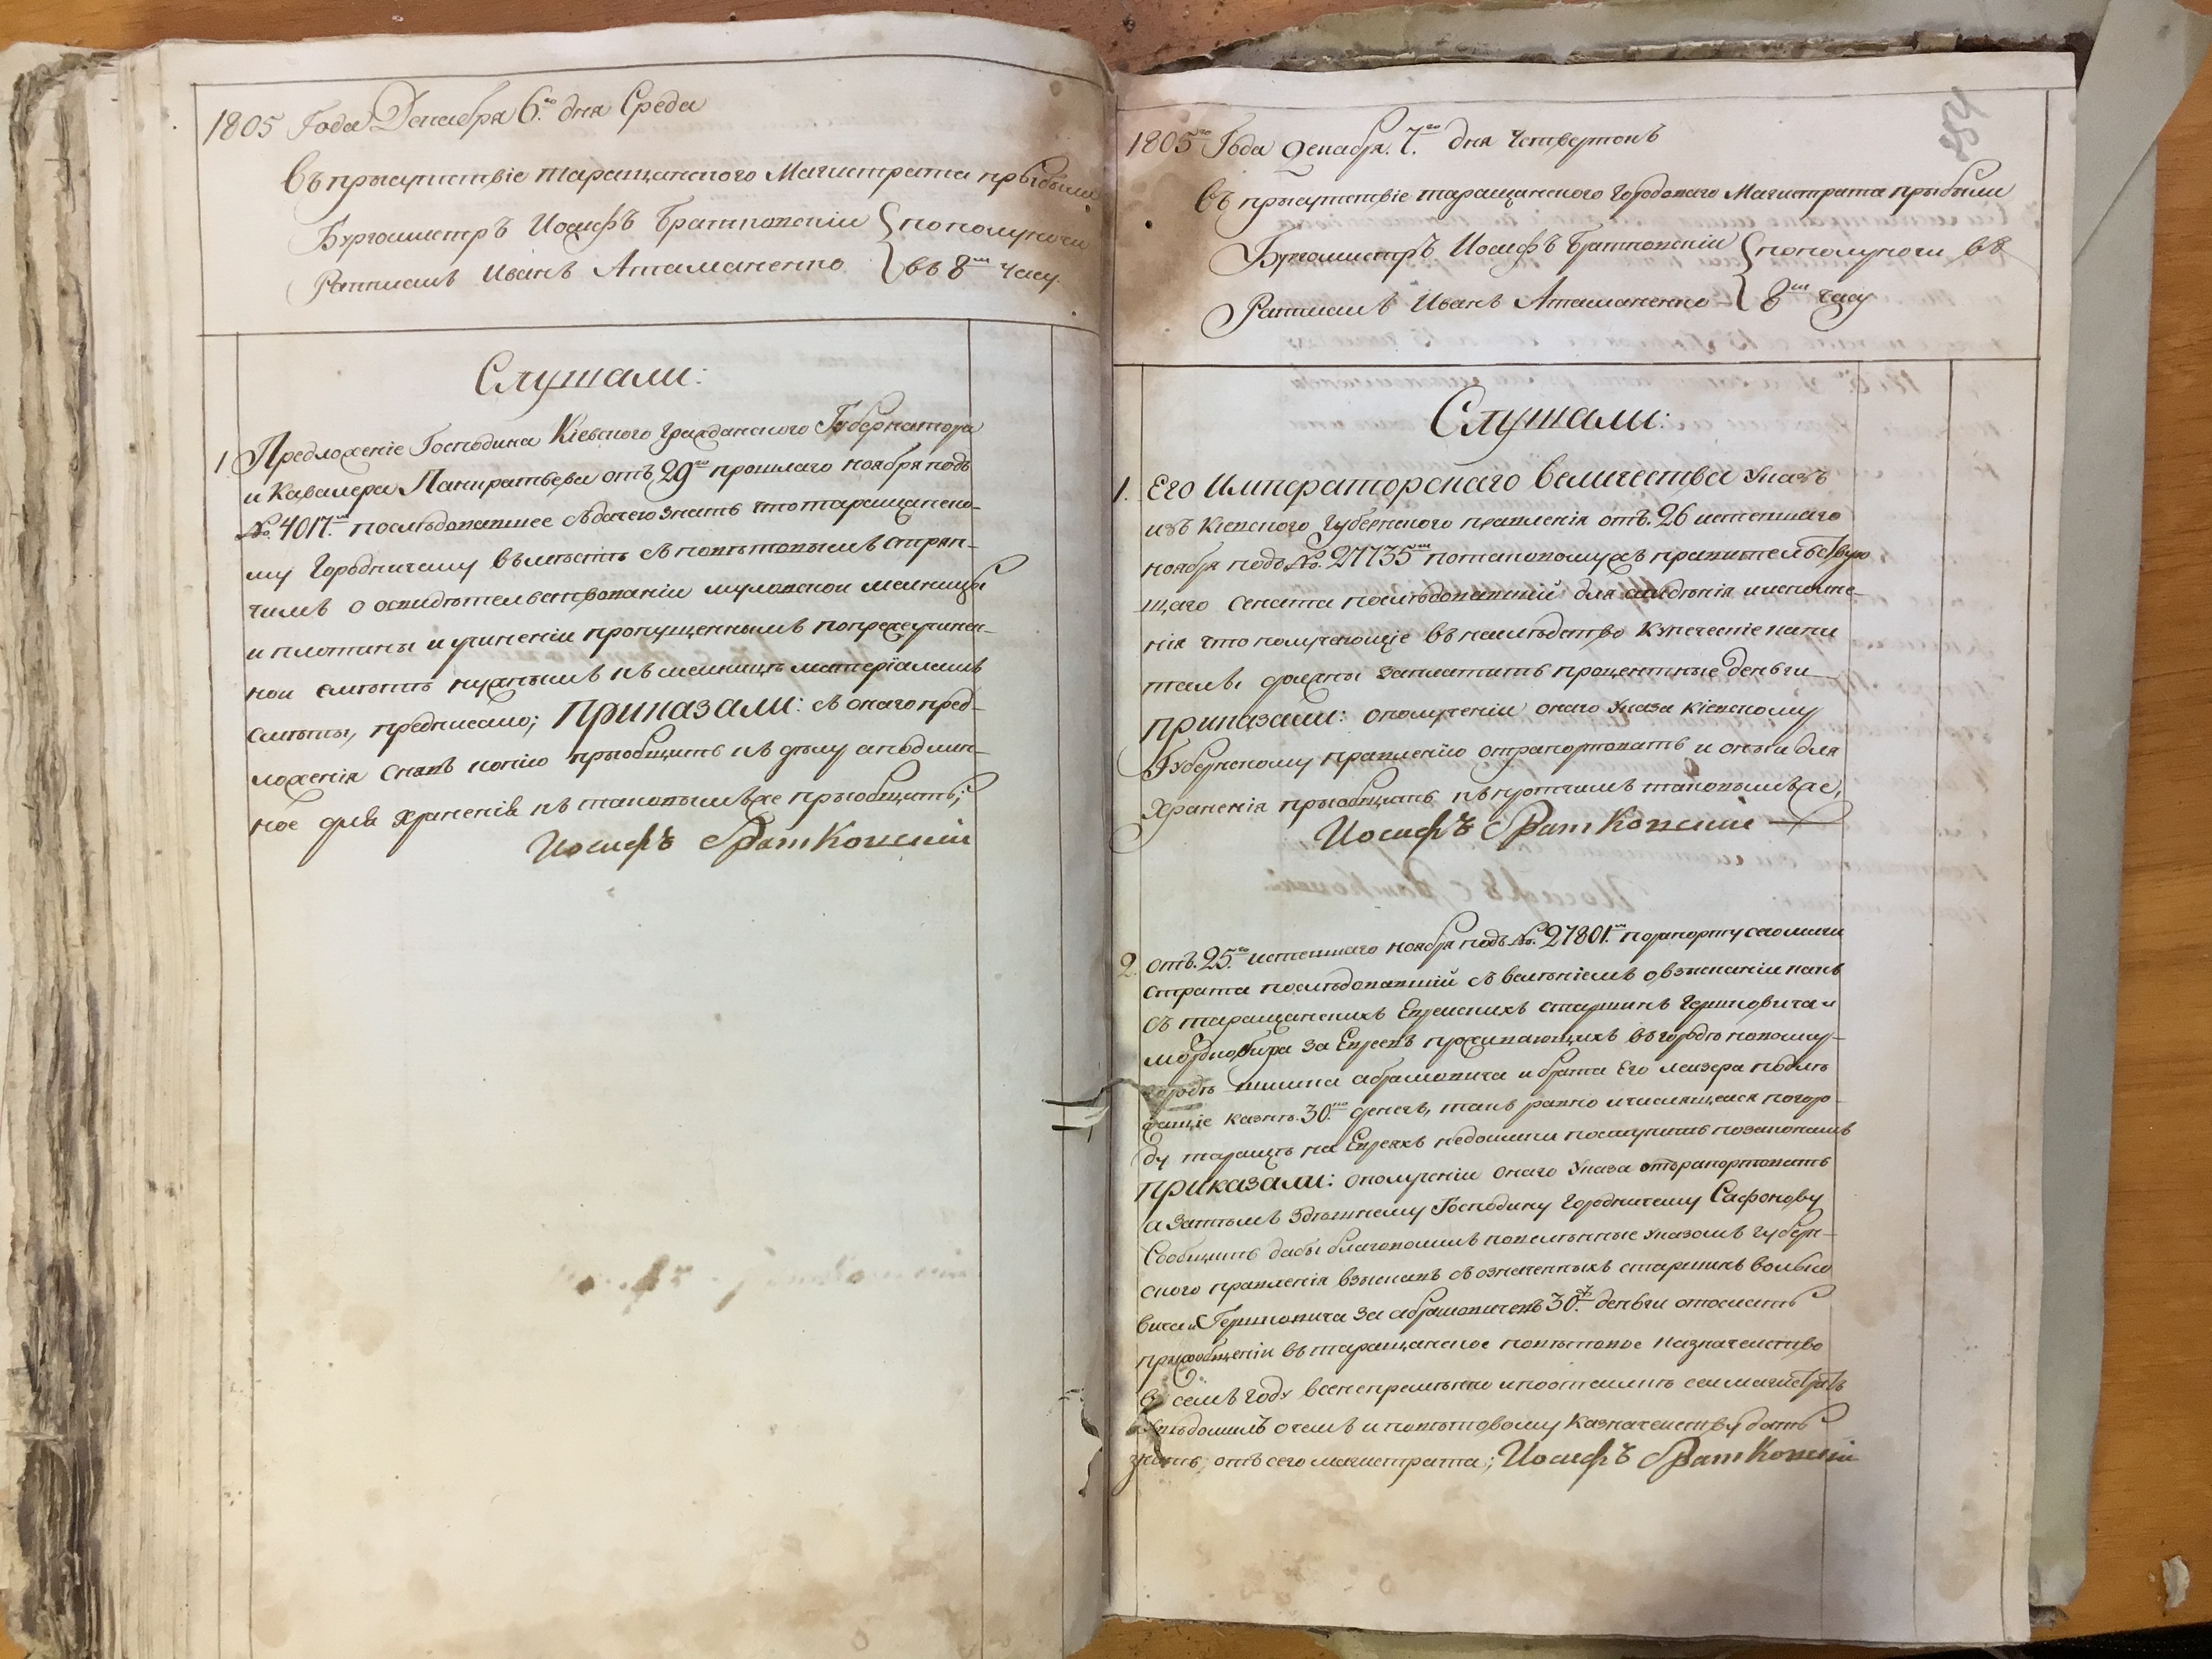 1805 Года Декабря 6.го дня Среда
Въ присутствіе таращанского Магистрата прибыли
Бургомистръ Иосифъ Братковскіи } по полуночи
Ратманъ Иванъ Атаманенко } въ 8м часу
Слушали:
1 Предложеніе Господина Кіевского Гражданского Губернатора
и Кавалера Панкратьева отъ 29го прошлаго ноября подъ
№ 4017м последовавшее съ дачею знать что таращанско-
му Городничему вместе съ поветовымъ стряп-
чимъ о освидетельствованіи муловской мелницы
и плотины и учиненіи пропущеннымъ по прежеучинен-
ной смете нужнымъ къ мелнице материаламъ
сметы, предписано; Приказали: съ онаго пред-
ложенія снявъ копію приобщить къ делу а подлин-
ное для храненія къ таковымъ же приобщить;
Иосифъ Братковскіи
1805го Года декабря 7.го дня Четвертокъ
въ присутствіе таращанского Городового Магистрата прибыли
Бургомистръ Иосифъ Братковскіи } по полуночи въ
Ратманъ Иванъ Атаманенко } 8м часу
Слушали:
1. Его Императорскаго Величества Указъ
изъ Кіевского Губернского правленія отъ 26 истекшаго
ноября подъ №. 27735м по таковому жъ правительствую
щаго Сената последовавшій для сведенія и исполне-
нія что получающіе въ наследство купеческіе капи
талы должны заплатить процентные деньги
Приказали: о полученіи онаго Указа Кіевскому
Губернскому правленію отрапортовать и оный для
Храненія приобщить къ протчимъ таковымъ же,
Иосифъ Братковскіи
2. отъ. 25.го истекшаго ноября подъ №. 27801.м по рапорту сего маги
страта последовавшій съ веленіемъ о взысканіи какъ
съ таращанскихъ Еврейскихъ старшинъ Гершковича и
за Евреевъ проживающихъ въ городе
абрамовича и брата Его Лейзера
казне. 30.ю денегъ, такъ равно и числящейся по горо-
ду тараще на Евреяхъ недоимки поступить по законамъ
Приказали: о полученіи онаго Указа отърапортовать
а затемъ здешнему Господину Городничему Сафонову
Сообщить дабы благоволилъ повеленные указомъ Губерн-
ского правленія взыскавъ съ означенныхъ старшинъ Волько
вича и Гершковича за абрамовичевъ 30.ть деньги отослать
къ приобщеніи въ таращанское поветовое Казначейство
въ семъ году всенепременно и по отсылке сей магистратъ
уведомилъ о чемъ и поветовому Казначейству дать
знать, отъ сего магистрата; Иосифъ Братковскіи